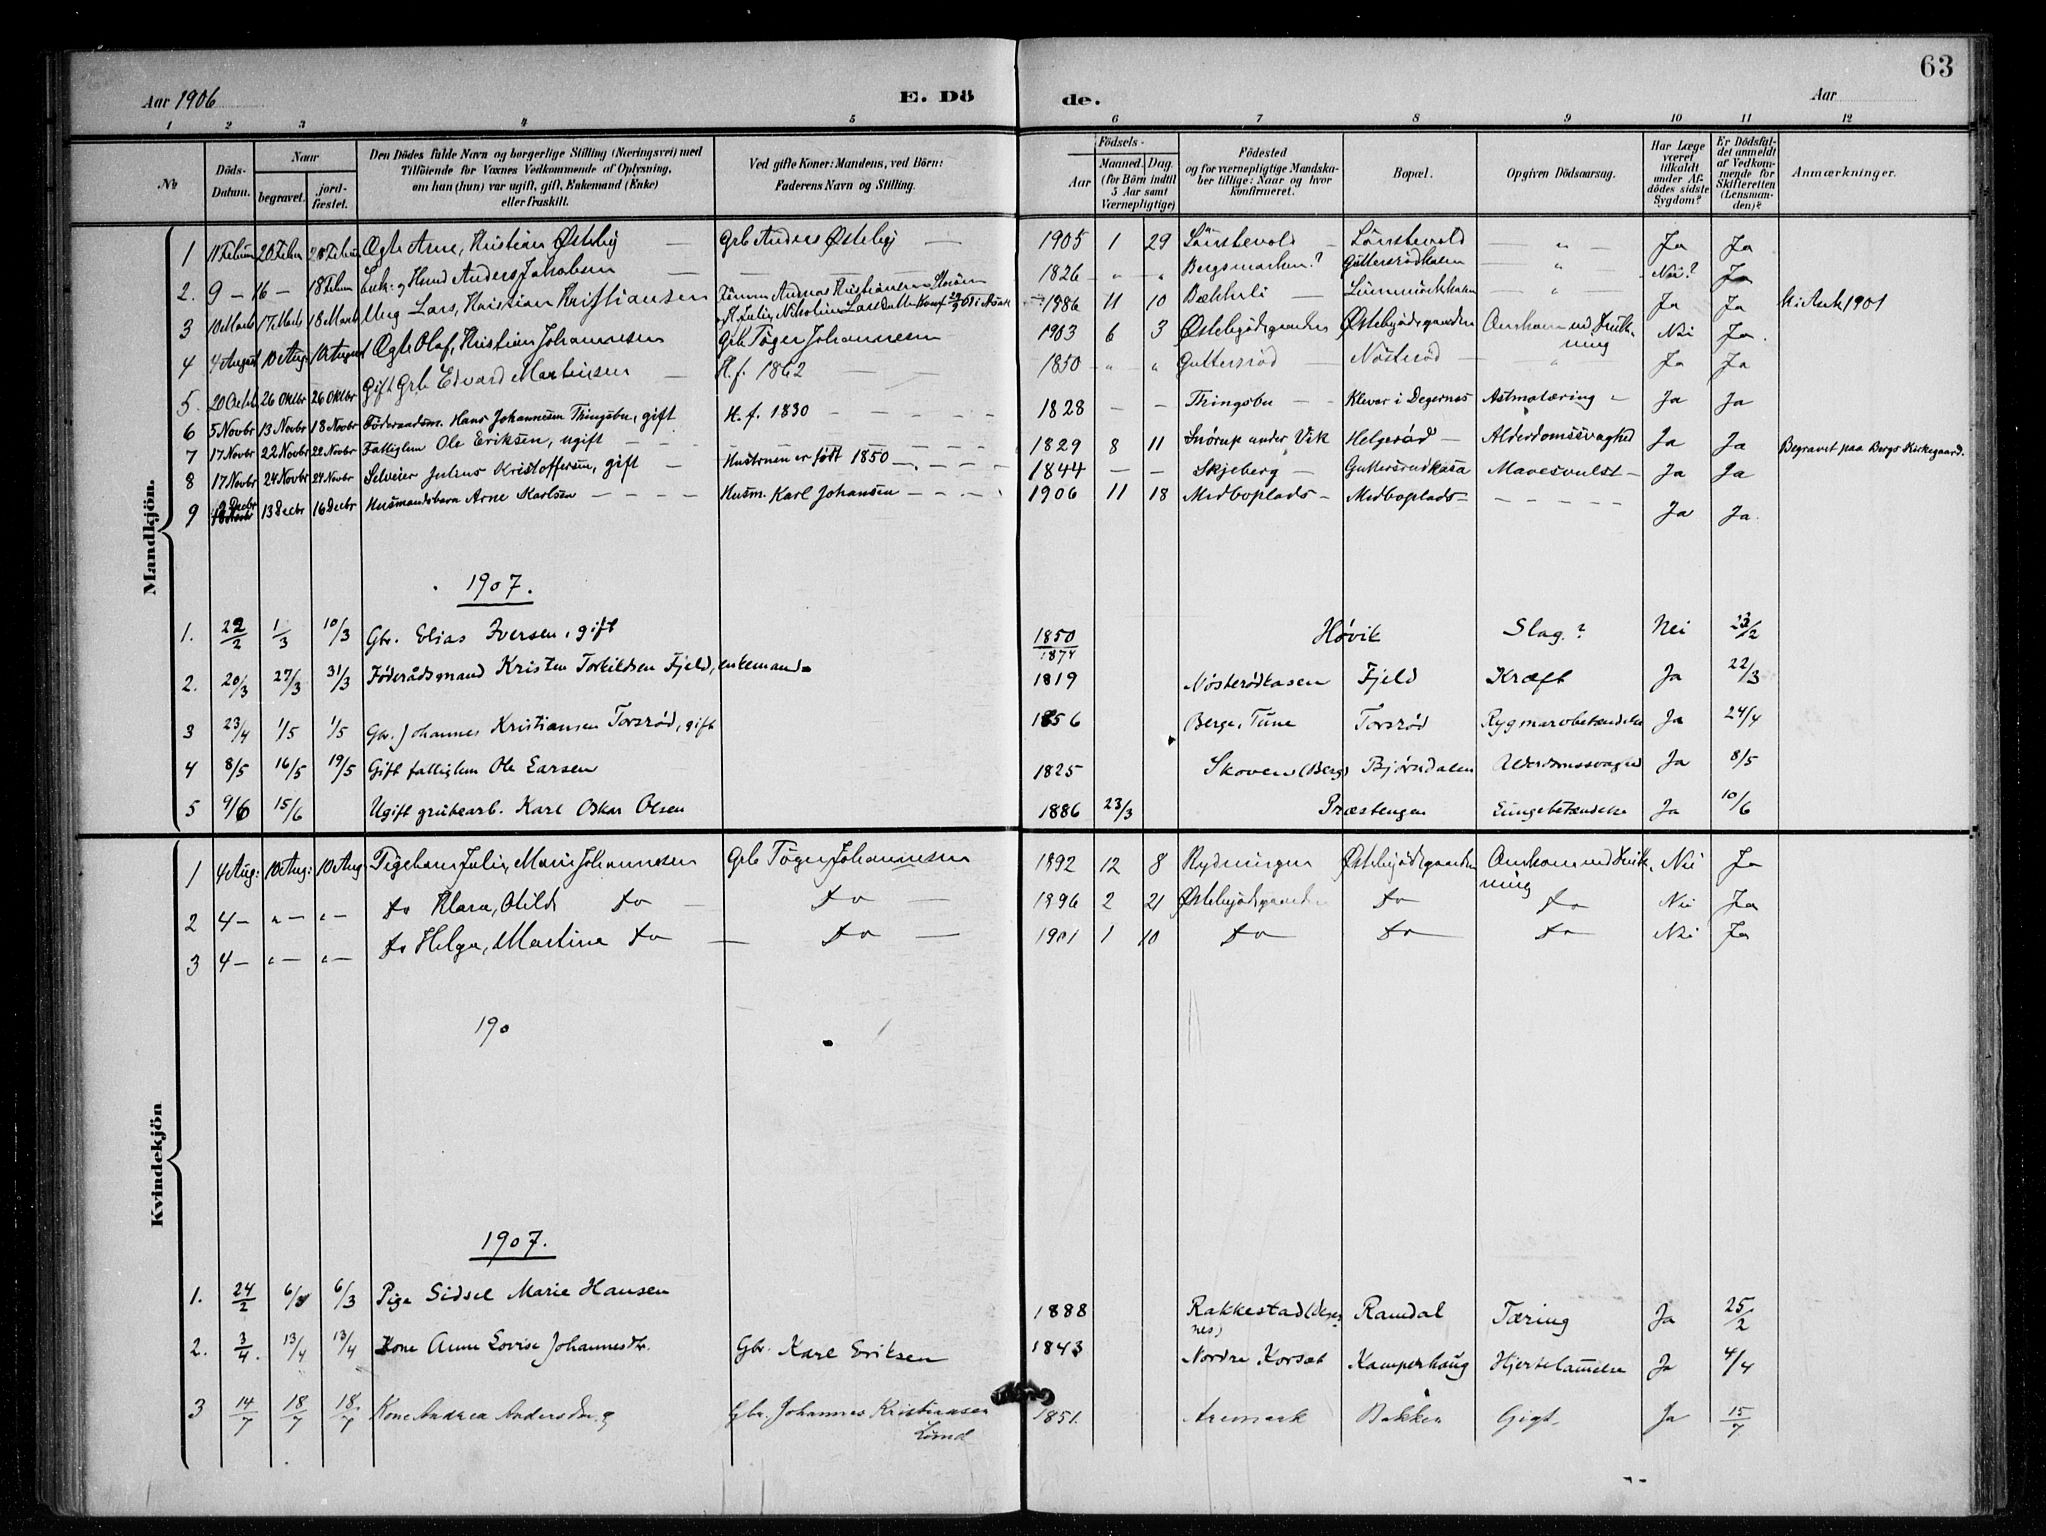 63
Aar 1906 E. Dö de. Aar
1 2 3 4 5 6 7 8 9 10 11 12
No
Döds-Datum.
Naar
begravet.
jord-fæstet.
Den Dödes fulde Navn og borgerlige Stilling (Næringsvei) med
Tilföiende for Voxnes Vedkommende af Oplysning,
om han (hun) var ugift, gift, Enkemand (Enke)
eller fraskilt.
Ved gifte Koner: Mandens, ved Börn:
Faderens Navn og Stilling.
Födsels-
Aar
Maaned. Dag.
(for Börn indtil
5 Aar samt
Værnepligtige)
Födested
og for værnepligtige Mandska-
ber tillige: Naar og hvor
konfirmeret.
Bopæl.
Opgiven Dödsaarsag.
Har Læge
været
tilkaldt
under Af-
dödes sidste
Sygdom?
Er Dödsfal-
det anmeldt
af Vedkom-
mende for
Skifteretten
(Lensman-
den)?
Anmærkninger.
Mandkjön.
1 11 Februar 20 Febru Ægte Arne, Kristian Østeby — Grb Anders Østeby — 1905 1 29 — " — Ja Ja
2. 9 — 16 — 18 Febru Anders Jakobsen — 1826 " " Bergsmarken? Guttersrødkasen — " — Nei? Ja
3 10 Marts 17 Marts 18 Marts Ung Lars, Kristian Kristiansen 1886 11 10 Bækkeli — — " — Ja Ja 1901
4 4 August 10 Aug: 10 August Ægte Olaf, Kristian Johannesen Grb Töger Johannesen 1903 6 3 Østebyødegaarden Østebyødegaarden Omkom ved Drukning Nei Ja.
5. 20 Octb 26 Oktbr 26 Oktbr Gift Grb Edvard Martinsen — H. f. 1862 — 1850 " " Guttersrød — Nösterød — " Ja Ja
6 5 Novbr 13 Novbr 18 Novbr Föderaadsm. Hans Johannesen Tringsbu, gift H. f. 1830 — 1828 — — Tringsbu — Klever i Degernes Astmatæring — Ja Ja
7 17 Novbr 22 Novbr 22 Novbr Fattiglem Ole Eriksen, ugift — 1829 8 11 Snörup under Vik Helgerød — Alderdomssvaghed Ja Ja Begravet paa Bergs Kirkegaard.
8 17 Novbr 24 Novbr 24 Novbr Selveier Julius Kristoffersen, gift — Hustruen er født 1850 — 1844 — — Skjeberg — Guttersrudkasa Mavesvulst — Ja Ja
9 2 Decbr 13 Decbr 16 Decbr Husmandsbarn Arne Karlsen — Husm. Karl Johansen — 1906 11 18 Medboplads — Medboplads — Ja Ja.
1907.
1. 22/2 1/3 10/3 Gbr. Elias Iversen, gift 1850 1874 Høvik Slag? Nei 23/2
2. 20/3 27/3 31/3 Føderådsmand Kristen Torkildsen Fjeld, enkemand 1819 Nösterödkasen Fjeld Kræft Ja 22/3
3 23/4 1/5 1/5 Gbr. Johannes Kristiansen Torsrød, gift 1856 Berge, Tune Torsrød Rygmarvbetændelse Ja 24/4
4 8/5 16/5 19/5 Gift fattiglem Ole Larsen 1825 Skoven (Berg) Bjørndalen Alderdomssvaghed Ja 8/5
5 9/6 15/6 Ugift grubearb. Karl Oskar Olsen 1886 23/3 Præstengen Lungebetændelse Ja 10/6
Kvindekjön
1 4 Aug: 10 Aug: 10 Aug Pigebarn Julie, Marie Johannesen Grb Töger Johannesen 1892 12 8 Rydningen Østebyødegaarden Omkom ved Drukning Nei Ja
2 4 — " — " — do Klara, Otilde do — do — 1896 2 21 Østebyødegaarden do do Nei Ja
3 4 — " — " — do Helga, Martine do — do — 1901 1 10 do do do Nei Ja
190
1907.
1. 24/2 6/3 6/3 Pige Sidsel Marie Hansen 1888 Rakkestad (Degernes) Ramdal Tæring Ja 25/2
2. 3/4. 13/4 13/4 Kone Anne Lovise Johannesdtr. Gbr. Karl Eriksen 1843 Nordre Korset Kamperhaug Hjertelammelse Ja 4/4
3 14/7 18/7 18/7 Kone Andrea Andersdtr. Gbr. Johannes Kristiansen Lund 1851. Aremark Bakken Gigt Ja 15/7